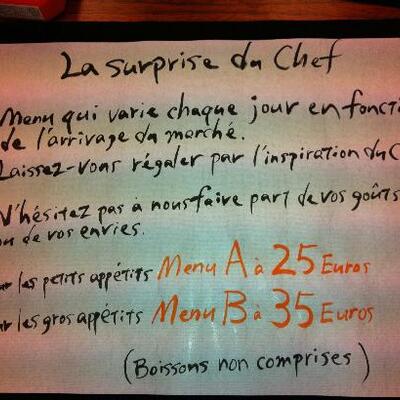 La surprise du Chef
Menu qui varie chaque jour en foncti
de l'arrivage du marché.
Laissez-vous régaler par l'inspiration du C
N'hésitez pas à nous faire part de vos goûts
ou de vos envies.
ur les petits appétits Menu A à 25 Euros
ur les gros appétits Menu B à 35 Euros
(Boissons non comprises)